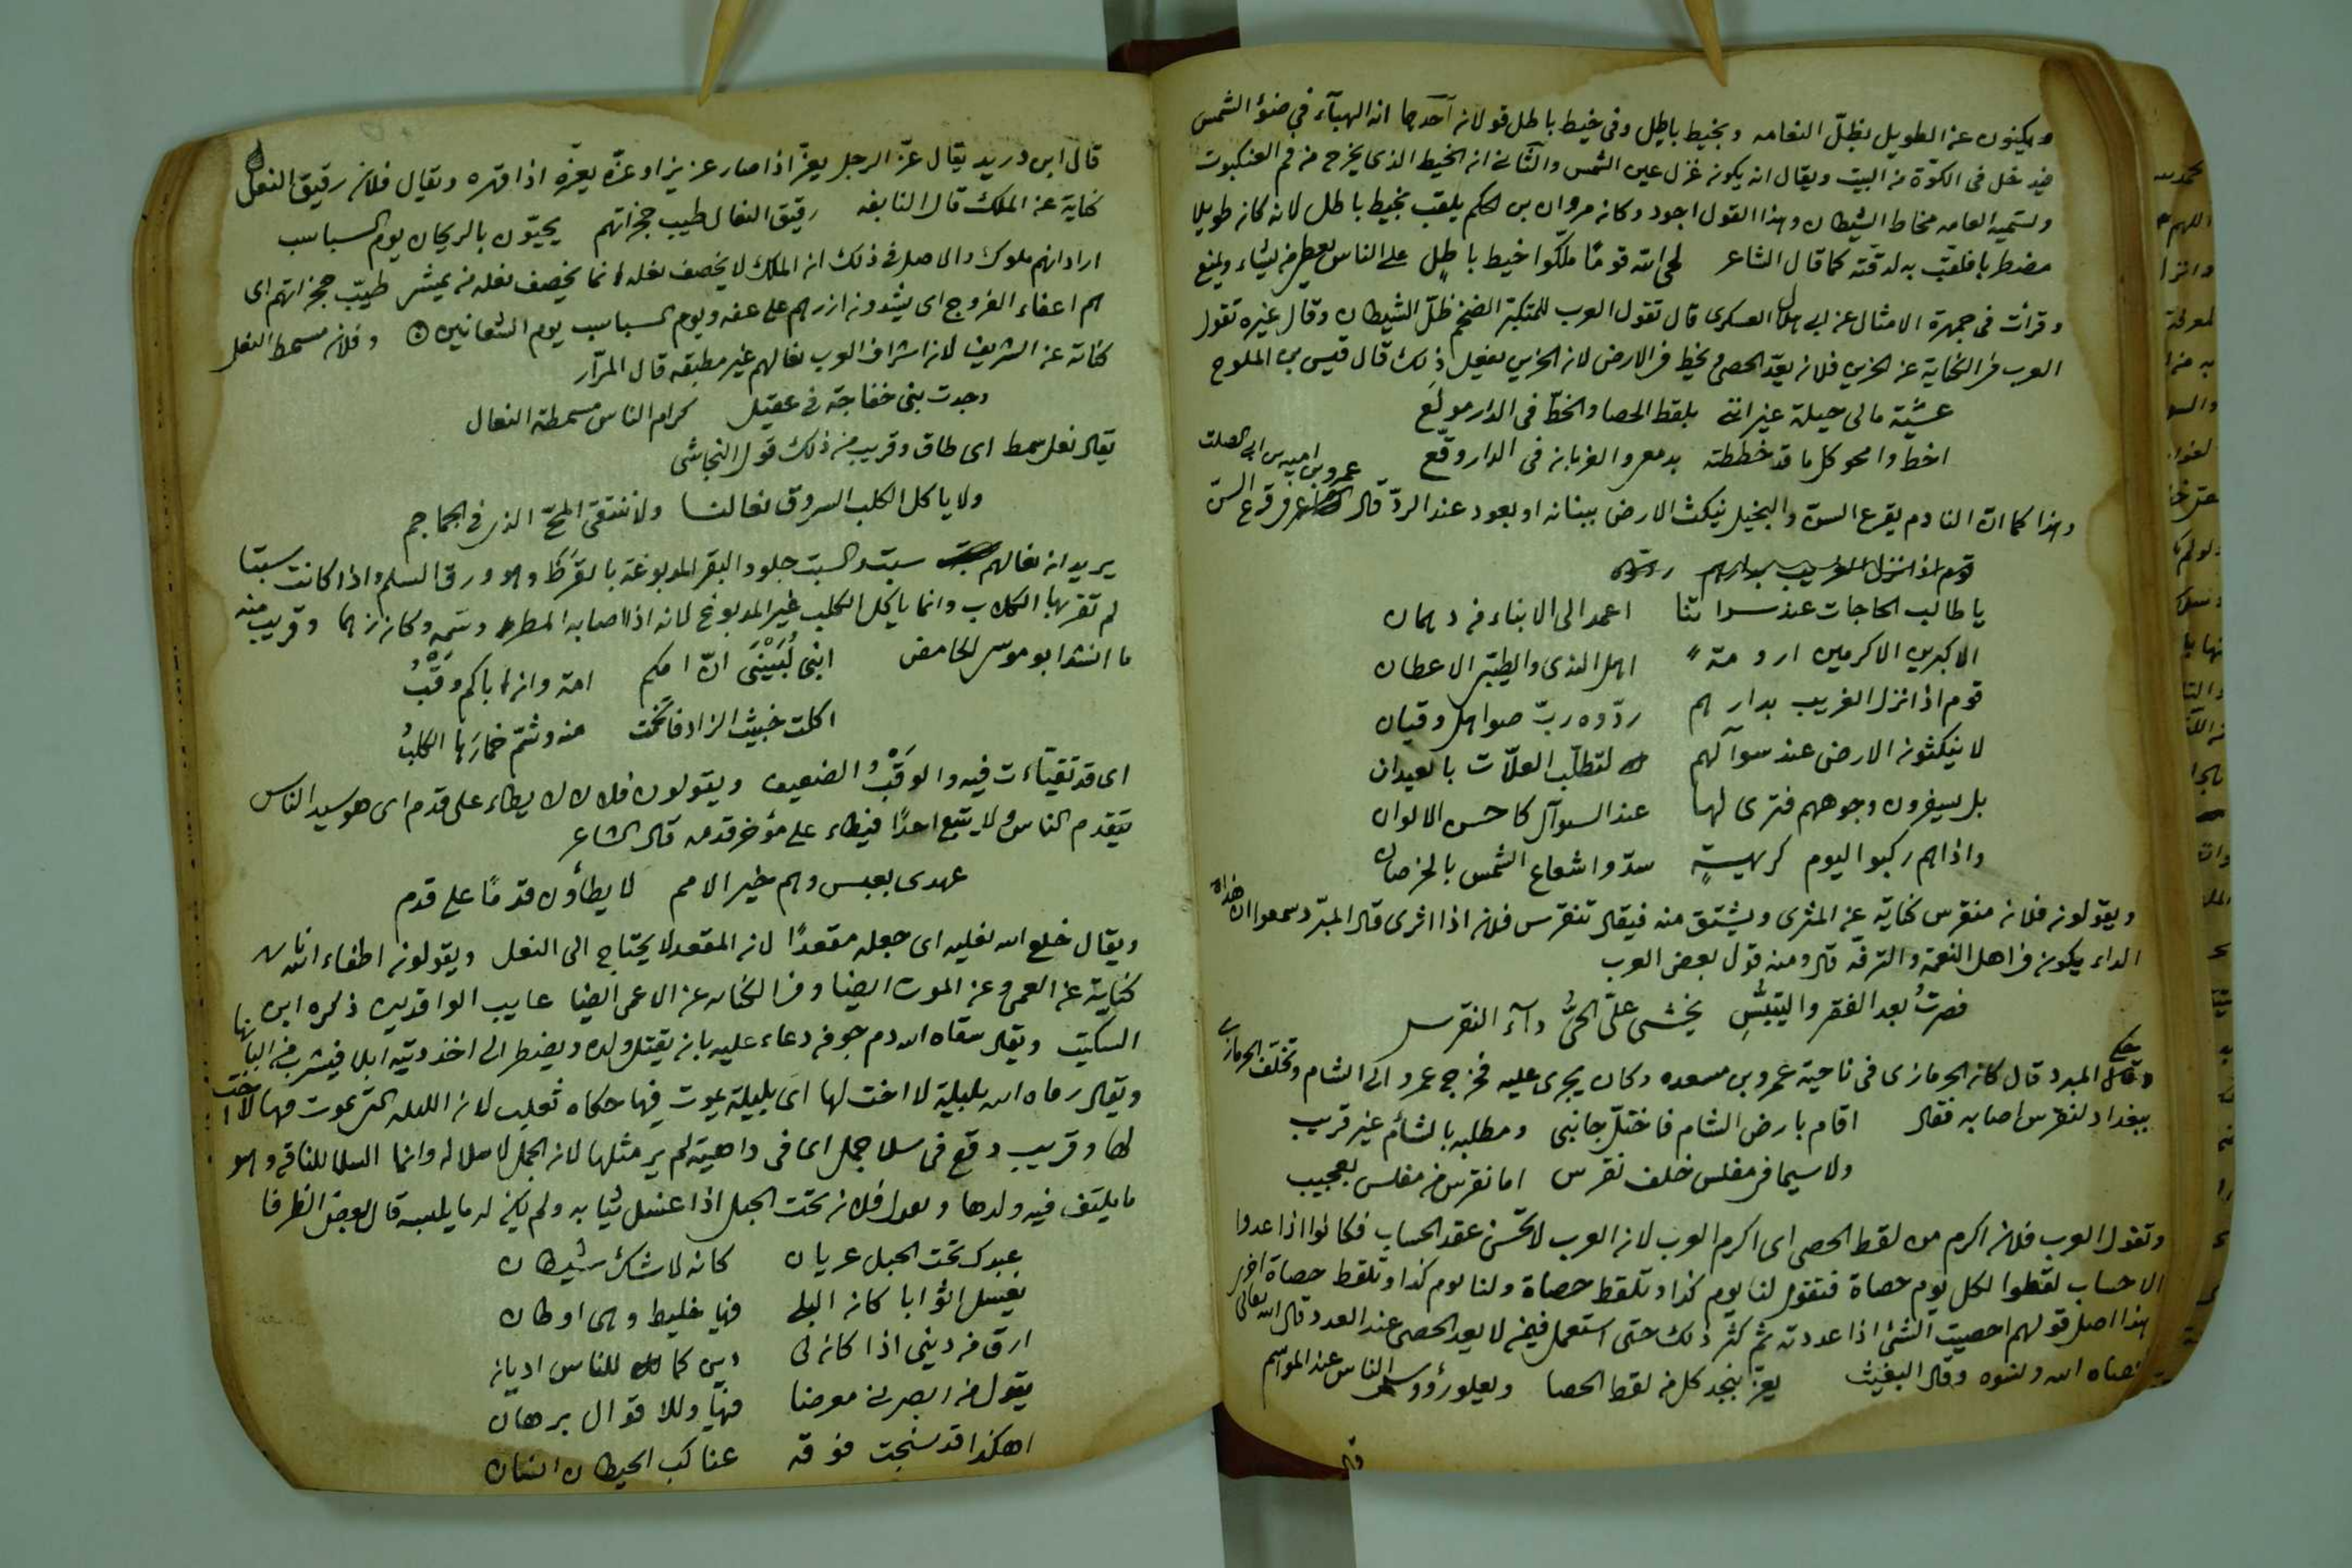 ويكنون عن الطويل بظلّ النعامه وبخيط باطل وفى خيط باطل قولان آحدهما انه الهبآء فى ضوٴ الشمس
فيدخل فى الكوّة من البيت ويقال انه يكون غزل عين الشمس والثانى انه الخيط الذى يخرج من فم العنكبوت
وتسميه العامه مخاط الشيطان وهذا القول اجود وكان مروان بن الحكم يلقب بخيط باطل لانه كان طويلا
مضطربا فلقب به لدقته كما قال الشاعر لحى الله قومًا ملّكوا خيط باطلٍ على الناس يعطى من يشاء ويمنع
وقرأت فى جمهرة الامثال عن ابى هلال العسكرى قال تقول العرب للمتكبّر الضخم ظلّ الشيطان وقال غيره تقول
العرب فى الكناية عن الحزين فلان يعدّ الحصى ويخط فى الارض لان الحزين يفعل ذلك قال قيس بن الملوح
عشيّة مالى حيلة غير اننى بلقط الحصا والخطّ فى الدار مولَع
اخط وامحو كل ما قد خططته بدمعى والغربان فى الدار وقّع
وهذا كما انّ النادم يقرع السنّ والبخيل ينكث الارض ببنانه او بعود عند الردّ قال فى قرع السنّ
عمرو بن اميه بن ابى الصلت
قوم اذا نزل الغريب بدارهم
يا طالب الحاجات عند سراتنا اعمد الى الابناء من دهمان
الاكبرين الاكرمين ارومةً اهل الندى والطيّبى الاعطان
قوم اذا نزل الغريب بدارهم ردّوه ربّ صواهل وقيان
لا ينكثون الارض عند سوآلهم لتطلّب العلّات بالعيدان
بل يسفرون وجوههم فترى لها عند السوآل كاحسن الالوان
واذا هم ركبوا اليوم كريهةٍ سدّوا شعاع الشمس بالخرصان
ويقولون فلان منقرس كناية عن المثرى ويشتق منه فيقال تنقرس فلان اذا اثرى قال المبرد سمعوا ان هذا
الداء يكون فى اهل النعمة والترفه قال ومنه قول بعض العرب
فصرتُ بعد الفقر والتيبّسِ يخشى علىّ الحىُّ دآء النقرس
حكى المبرد قال كان الحرمازى فى ناحية عمرو بن مسعده وكان يجرى عليه فخرج عمرو الى الشام وتخلّف الحرمازى
ببغداد لنقرس اصابه فقال اقام بارض الشام فاختلّ جانبى ومطلبه بالشأم غير قريب
ولا سيما فى مفلس خلف نقرس اما نقرس فى مفلس بعجيب
وتقول العرب فلان اكرم من لقط الحصى اى اكرم العرب لان العرب لا تحّسن عقد الحساب فكانوا اذا عدوا
الاحساب لقطوا لكل يوم حصاة فتقول لنا يوم كذا وتلقط حصاة ولنا يوم كذا وتلقط حصاة اخرى
هذا اصل قولهم احصيت الشئ اذا عددته ثم كثر ذلك حتى استعمل فيمن لا يعد الحصى عند العدد قال الله تعالى
احصاه الله ونسوه وقال البعيث يعز بنجد كل من لقط الحصا ويعلو رؤوس الناس عند المواسم
قال
قال ابن دريد يقال عزّ الرجل يعزّ اذا صار عزيزا وعزّه يعزّه اذا قهره ويقال فلان رقيق النعل
كناية عن الملك قال النابغه رقيق النعال طيب حجزاتهم يحيّون بالريحان يوم السباسب
اراد انهم ملوك والاصل فى ذلك ان الملك لا يخصف نعله انما يخصف نعله من يمشى طيّب حجزاتهم اى
هم اعفاء الفروج اى يشدون ازرهم على عفه ويوم السباسب يوم الشعانين وفلان مسمط النعل
كناية عن الشريف لان اشراف العرب نعالهم غير مطبقه قال المرّار
وجدت بنى خفاجة فى عقيل كرام الناس مسمطة النعال
يقال نعل سمط اى طاق وقريب من ذلك قول النجاشى
ولا ياكل الكلب السروق نعالنا ولا ننتقى المخّ الذى فى الجماجم
يريد ان نعالهم سبت والسبت جلود البقر المدبوغة بالقَرَظ وهو ورق السلم واذا كانت سبتا
لم تقربها الكلاب وانما ياكل الكلب غير المدبوغ لانه اذا اصابه المطر وقريب منه
ما انشد ابو موسى الحامض ابنى لُبَيْنَى انّ امكم امة وان اباكم وَقْبُ
اكلت خبيث الزاد فاتّخمت منه وشمّ خمارَها الكلبُ
اى قد تقيّأت فيه والوَقْبُ الضعيف ويقولون فلان لا يطاء على قدم اى هو سيد الناس
يتقدم الناس ولا يتبع احدًا فيطاء على مؤخر قدمه قال الشاعر
عهدى بعبس وهم خير الامم لا يطأون قدمًا على قدم
ويقال خلع الله نعليه اى جعله مقعدًا لان المقعد لا يحتاج الى النعل ويقولون اطفاء الله ناره
كناية عن العمى وعن الموت ايضا ومن الكنايه عن الاعمى ايضا ذكره ابن
السكيت ويقال سقاه الله دم جوفه دعاء عليه بان يقتل ولده ويضطر الى اخذ ديته ابلا فيشرب من البانها
ويقال رماه الله بليلة لا اخت لها اى بليلة يموت فيها حكاه ثعلب لان الليله التى يموت فيها لا اخت
لها وقريب وقع فى سلا جمل اى فى داهية لم ير مثلها لان الجمل لا سلا له وانما السلا للناقه وهو
ما يلتف فيه ولدها ويقال فلان تحت الحبل اذا غسل ثيابه ولم يكن له ما يلبسه قال بعض الظرفا
عبدك تحت الحبل عريان كانه لا شك شيطان
يغسل اثوابا كان البلى فيها خليط وهى اوطان
ارق من دينى اذا كان لى دين كما للناس اديان
يقول من ابصرنى معرضا فيها وللاقوال برهان
اهكذا قد نسجت فوقه عناكب الحيطان انسان